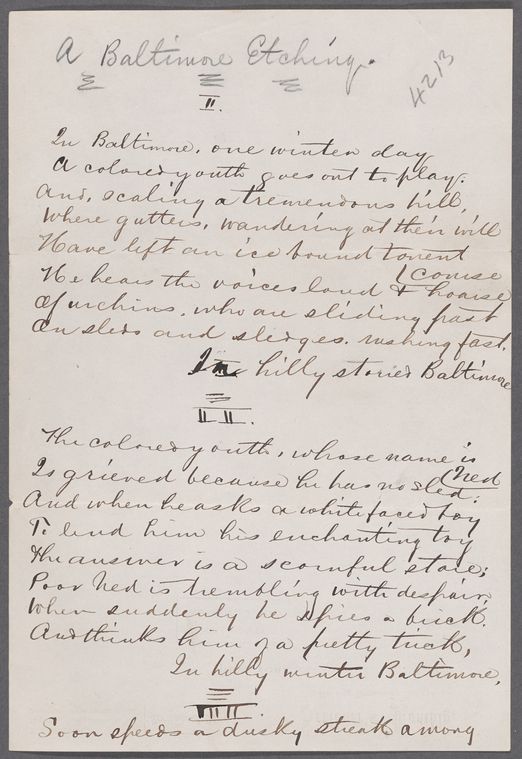 A Baltimore Etching.
4213
II.
In Baltimore, one winter day
A colored youth goes out to play;
And, scaling a tremendous hill,
Where gutters, wandering at their will
Have left an ice bound torrent
(course
He hears the voices loud & hoarse
Of urchins, who are sliding past
On sleds and sledges, rushing fast.
In hilly storied Baltimore
II II.
The colored youth, whose name is
(Ned
Is grieved because he has no sled;
And when he asks a white faced boy
To lend him his enchanting toy
The answer is a scornful stare;
Poor Ned is trembling with despair,
When suddenly he spies a brick.
And thinks him of a pretty trick,
In hilly winter Baltimore,
III II
Soon speeds a dusky streak among